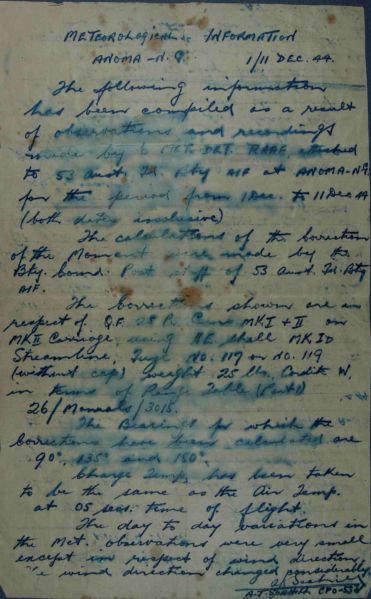 METEOROLOGICAL INFORMATION
ANOMA - N.G. 1/11 DEC. 44.
The following information
has been compiled as a result
of observations and recordings
made by 6 MET. DET. RAAF, attached
to 53 Aust. Fd. Bty AIF at ANOMA-N.G.
for the period from 1 Dec. to 11 Dec 44
(both dates inclusive)
The calculations of the Correction
of the Moment were made by the
Bty. Comd. Post staff of 53 Aust. Fd. Bty
AIF.
The Corrections shown are in
respect of Q.F. 25 Pr. Guns MK I + II on
MK II Carriage, using HE shell MK ID
Streamline, Fuze No. 117 or No. 119
(without cap) weight 25 lbs, Cordite W.
in terms of Range Table (Part 1)
26/Manuals/3015.
The Bearings for which the
Corrections have been calculated are
90°, 135° and 180°.
Charge Temp. has been taken
to be the same as the Air Temp.
at 05 secs. time of flight.
The day to day variations in
the Met. observations were very small
except in respect of wind direction
wind direction changed considerably.
A.J. CPO-53